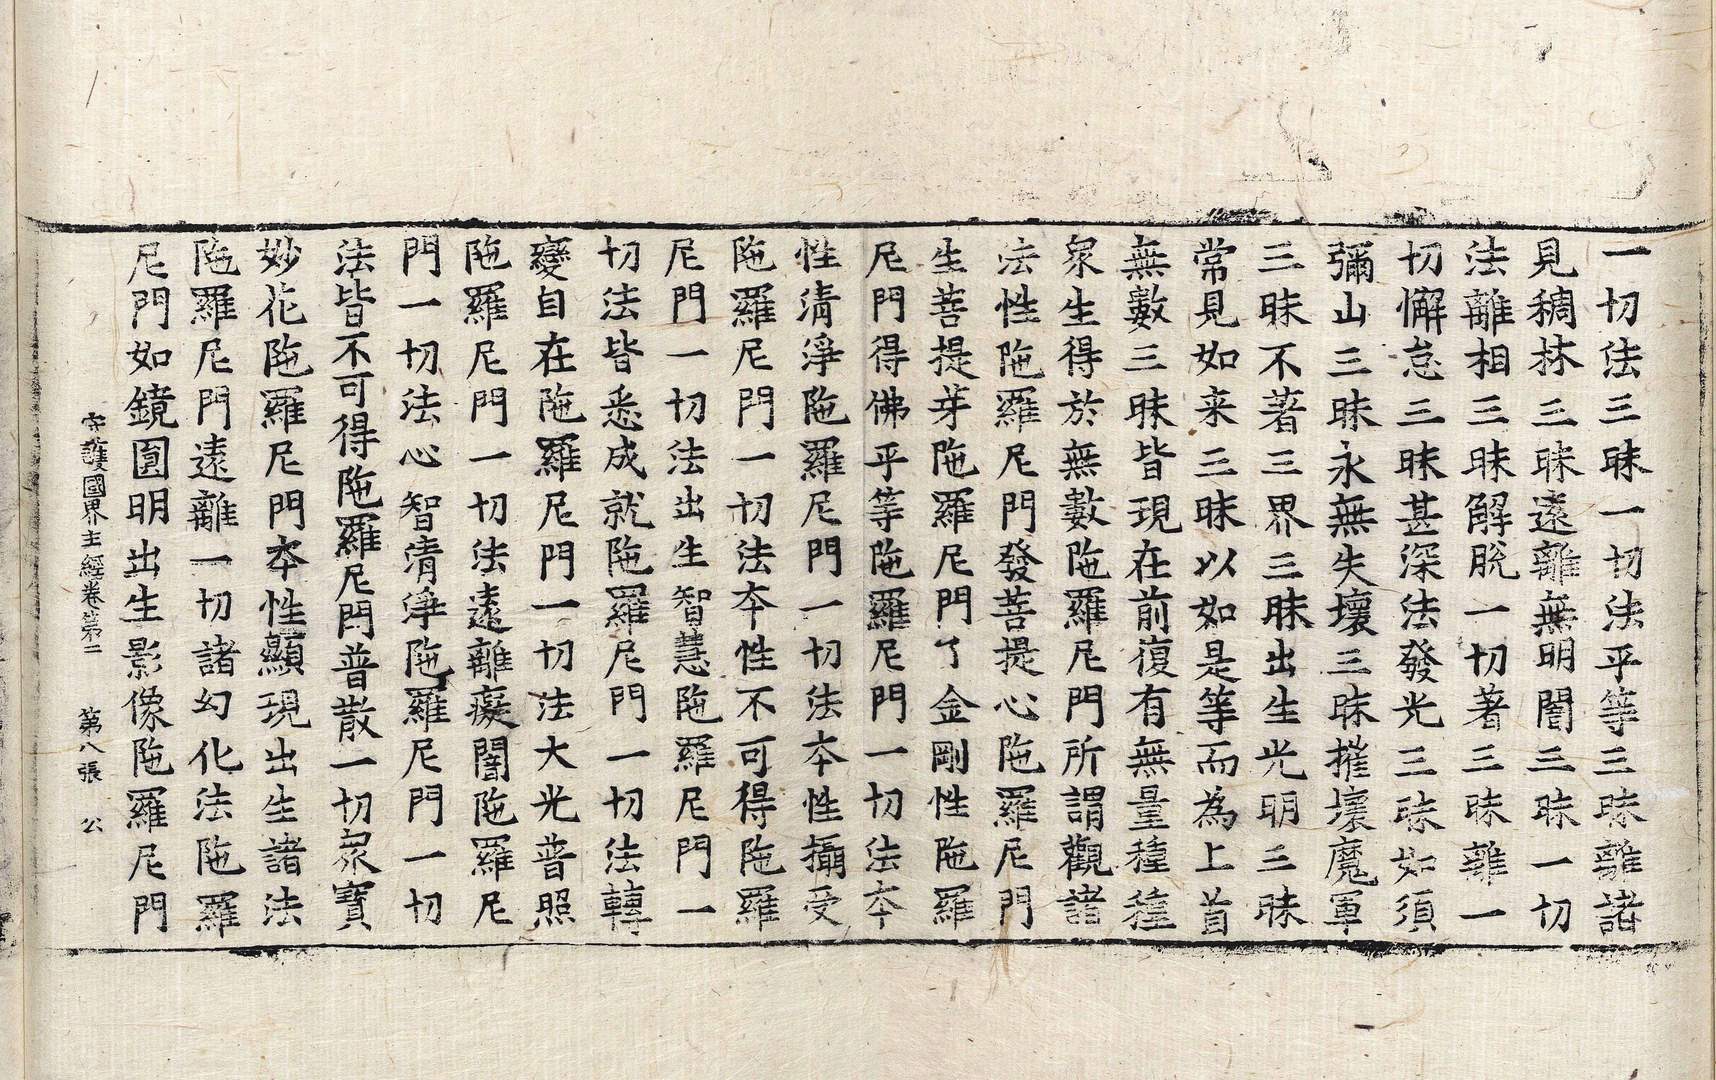 一切法三昧一切法平等三昧離諸
見稠林三昧遠離無明闇三昧一切
法離相三昧解脫一切著三昧離一
切懈怠三昧甚深法發光三昧如須
彌山三昧永無失壞三昧摧壞魔軍
三昧不著三界三昧出生光明三昧
常見如来三昧以如是等而為上首
無數三昧皆現在前復有無量種種
衆生得於無數陁羅尼門所謂觀諸
法性陁羅尼門發菩提心陁羅尼門
生菩提芽陁羅尼門了金剛性陁羅
尼門得佛平等陁羅尼門一切法夲
性清淨陁羅尼門一切法夲性攝受
陁羅尼門一切法夲性不可得陁羅
尼門一切法出生智慧陁羅尼門一
切法皆悉成就陁羅尼門一切法轉
變自在陁羅尼門一切法大光普照
陁羅尼門一切法遠離癡闇陁羅尼
門一切法心智清淨陁羅尼門一切
法皆不可得陁羅尼門普散一切衆寶
妙花陁羅尼門夲性顯現出生諸法
陁羅尼門遠離一切諸幻化法陁羅
尼門如鏡圓明出生影像陁羅尼門
守護國界主經卷第二 第八張 公